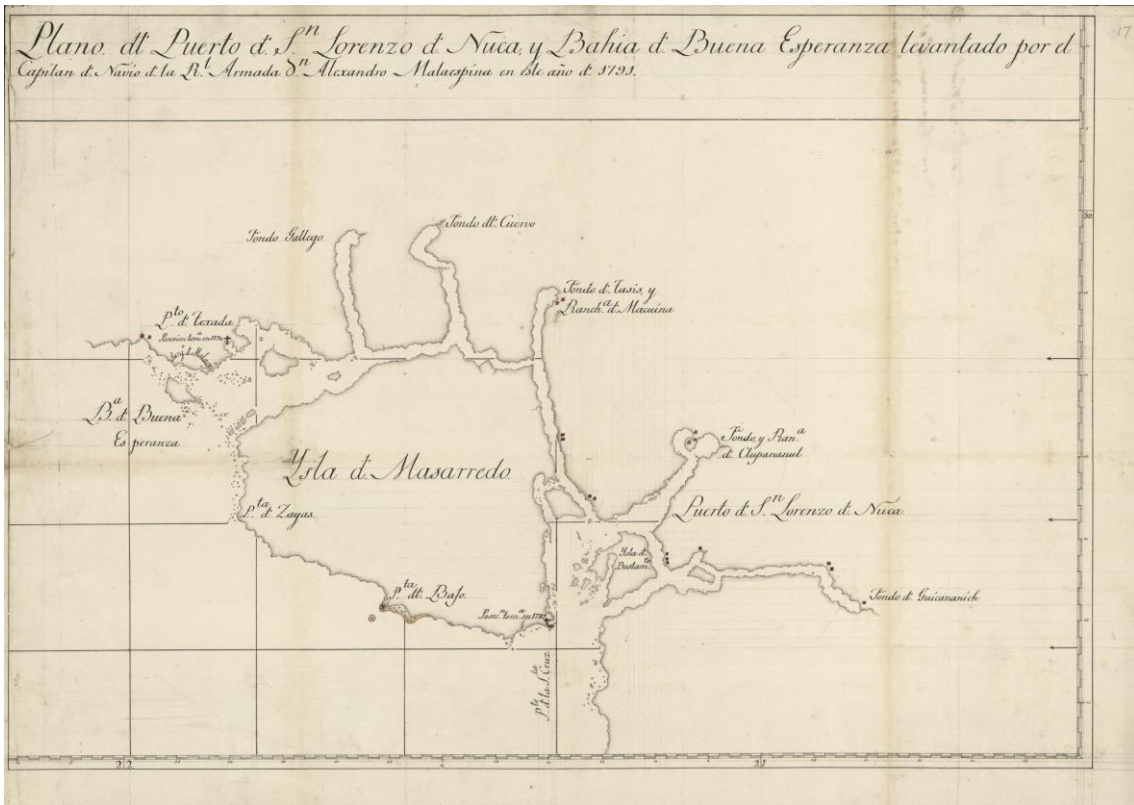 Plano dt Puerto d. S.n Lorenzo d. Nuca, y Bahia d. Buena Esperanza levantado por el
Capitan d. Navio d. la R.l Armada Dn Alexandro Malaespina en este año d. 1791.
17
Fondo Gallego
Fondo dt. Cuervo
Fondo d. Tasis, y
Ranch.a d. Macuina
P.to d. Texada
30
B.a d. Buena
Esperanza
Ysla d. Masarredo
Fondo, y Ran.a
d. Clupananul
P.ta d. Zayas
Puerto d. S.n Lorenzo d. Nuca
Ysla d.
Bustam.te
P.ta dt. Baso
Fondo d. Guicananich
P.ta d. la S.ta Cruz
22
21